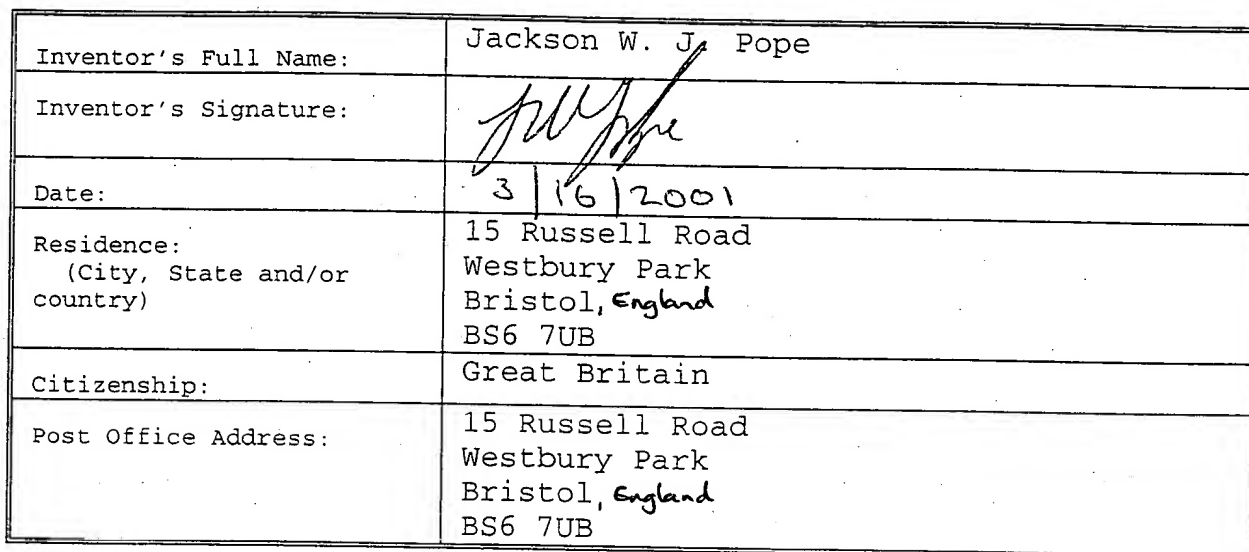 Inventor's Full Name: Jackson W. J. Pope
Inventor's Signature: JW Pope
Date: 3/16/2001
Residence: 15 Russell Road
(City, State and/or Westbury Park
country) Bristol, England
BS6 7UB
Citizenship: Great Britain
Post Office Address: 15 Russell Road
Westbury Park
Bristol, England
BS6 7UB